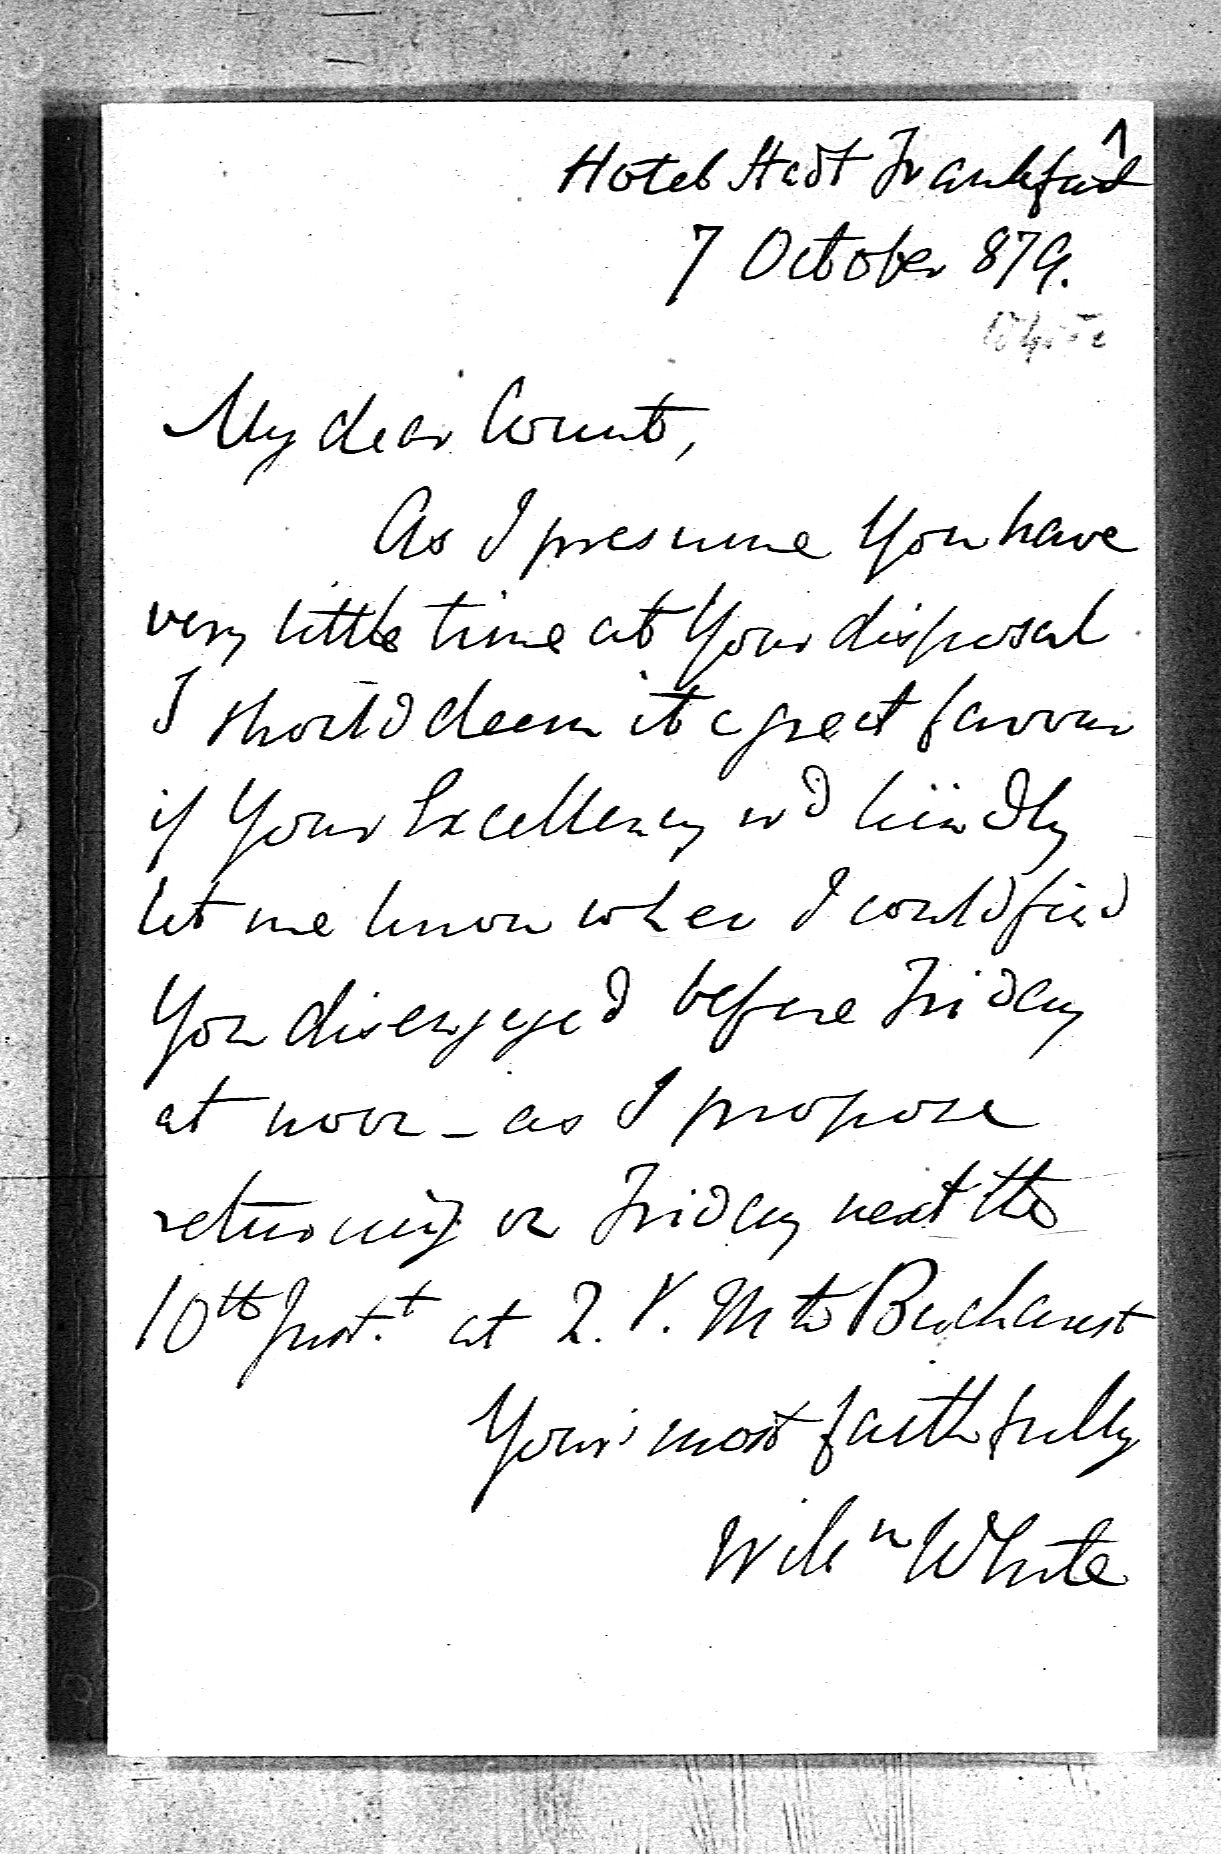 1
Hotel Stadt Frankfurt
7 October 879.
White
My dear Count,
As I presume You have
very little time at Your disposal
I should deem it a great favour
if Your Excellency wd kindly
let me know when I could find
You disengaged before Friday
at noon _ as I propose
returning on Friday next the
10th Inst.t at 2. P. M to Bucharest
Your's most faithfully
Willm White